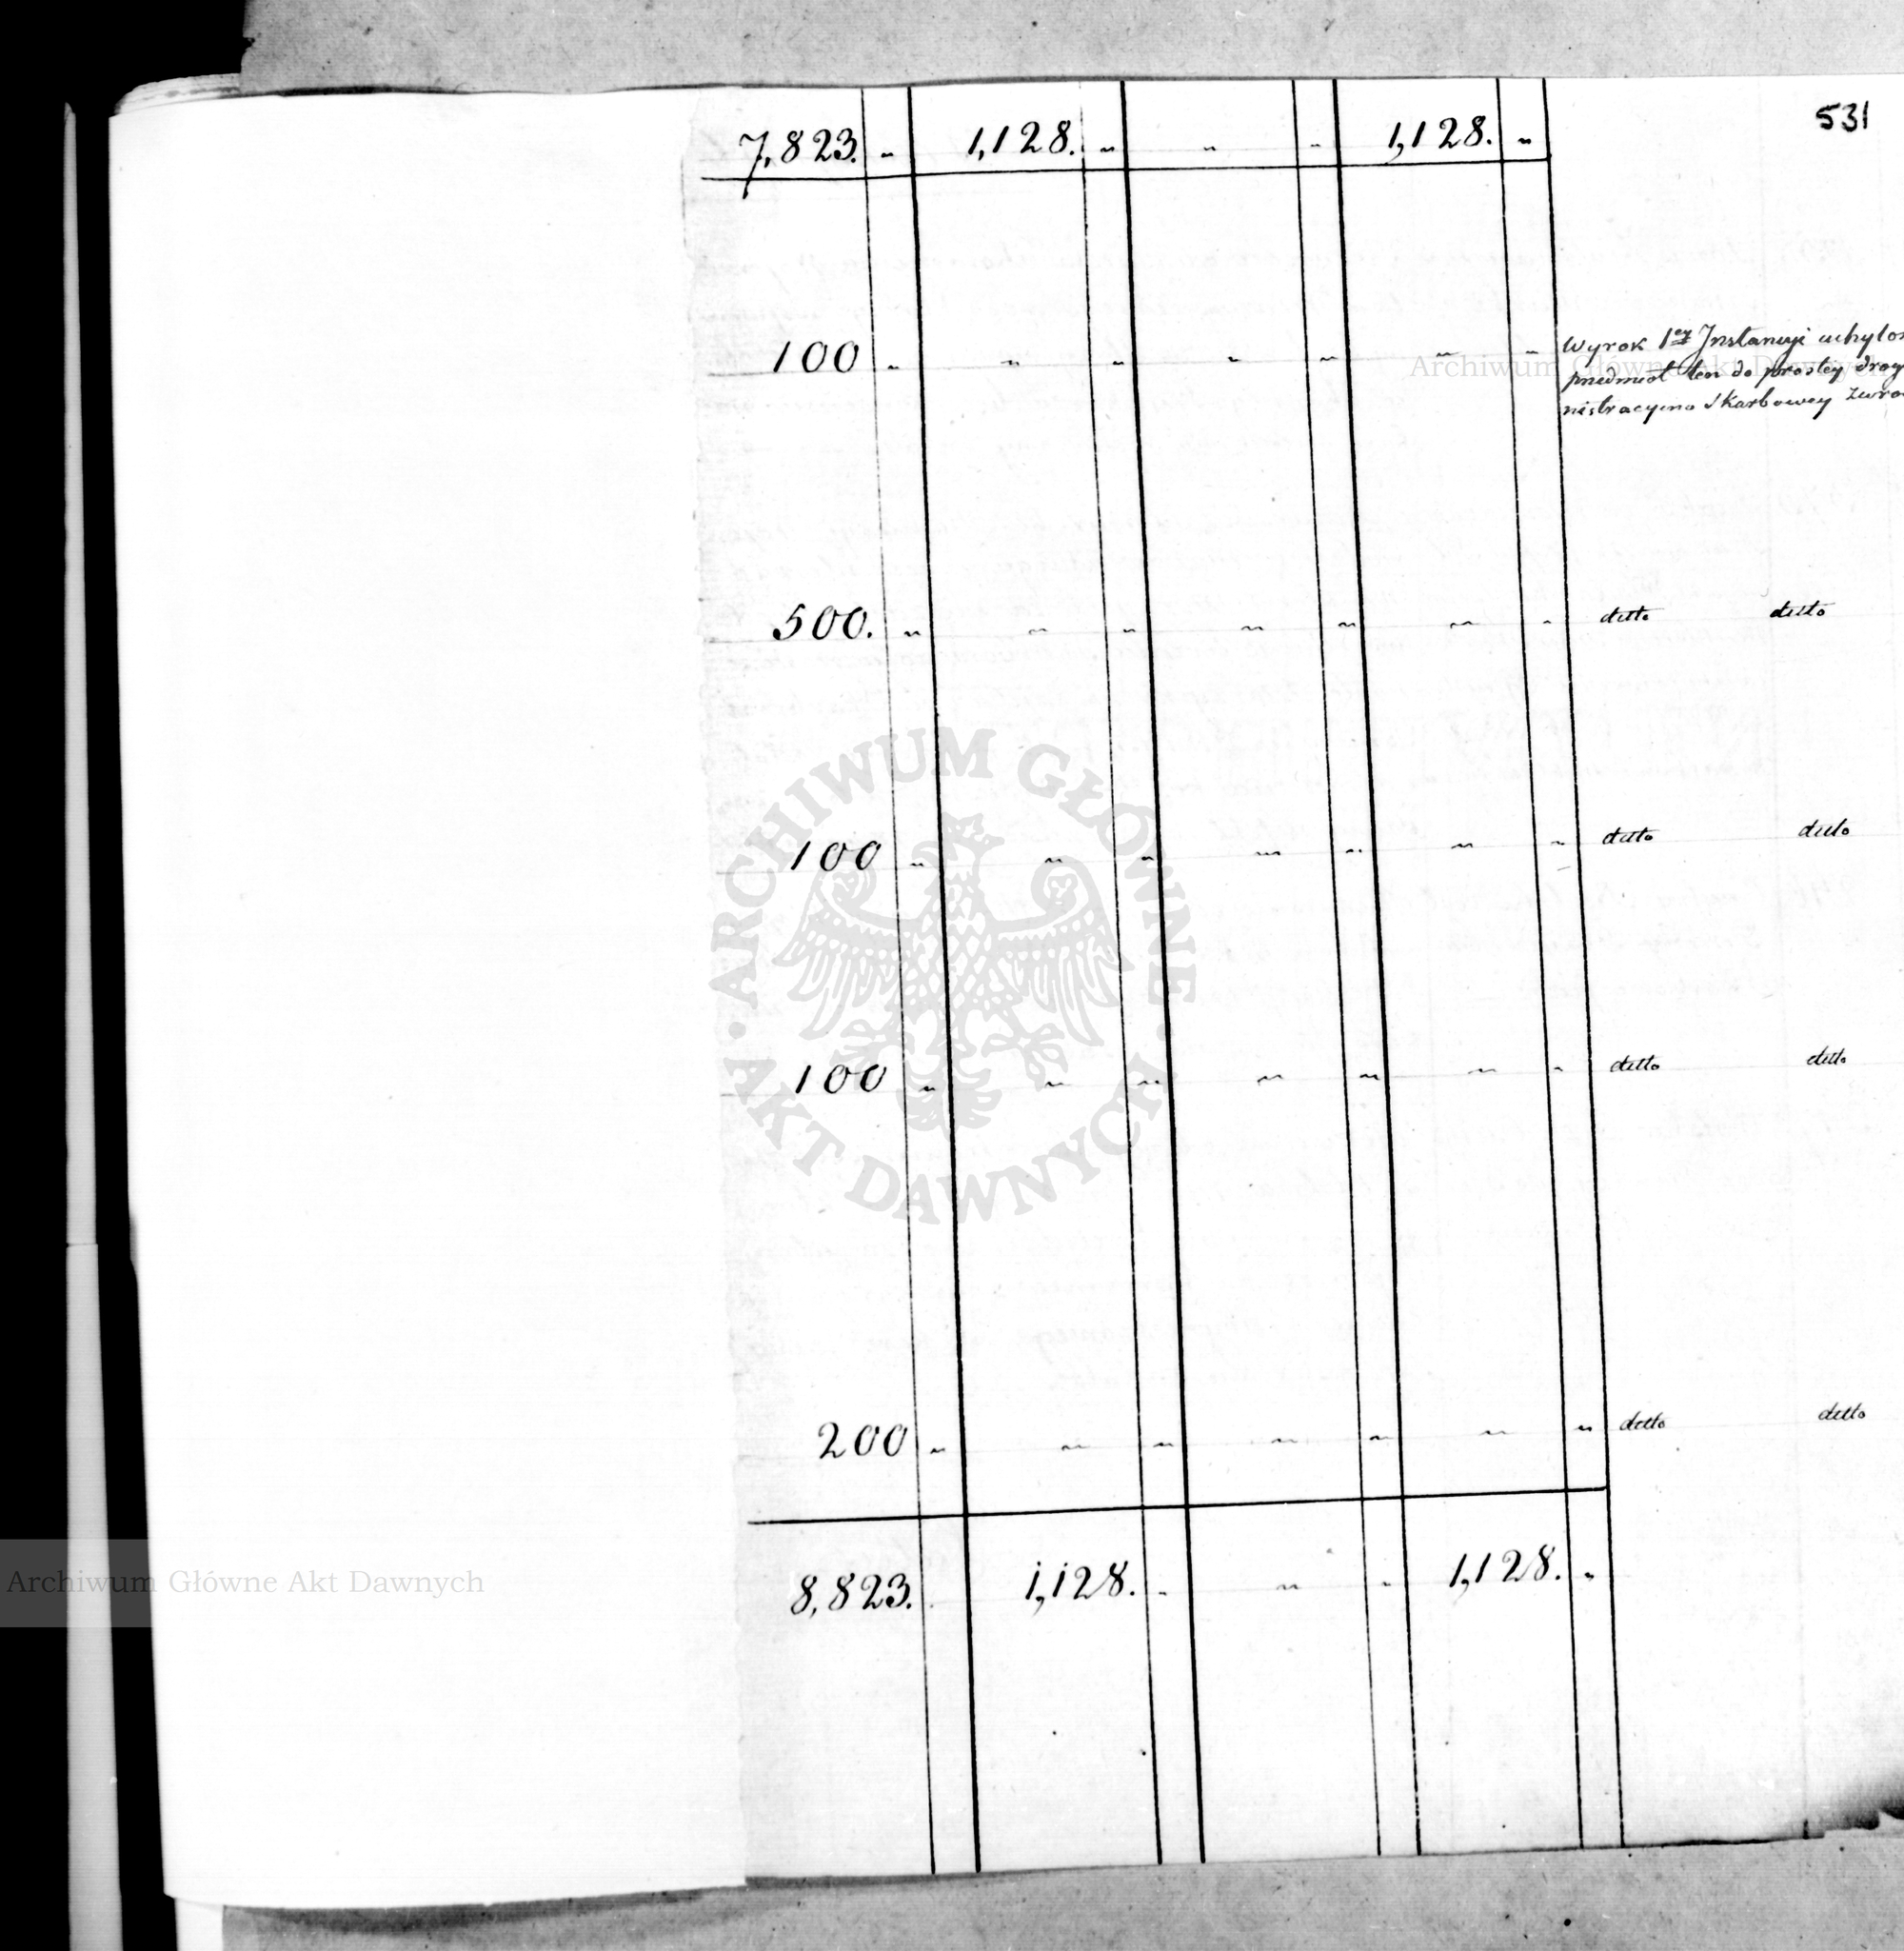 531
7,823. " 1,128. " " " 1,128. "
100 " " " " " " "
Wyrok 1ey Instancyi uchylo
przedmiot ten do prostey drog
nistracyino Skarbowey zwro
500. " " " " " " " detto detto
100 " " " " " " " detto detto
100 " " " " " " " detto detto
200 " " " " " " " detto detto
8,823. 1,128. " " " 1,128. "
Archiwum Główne Akt Dawnych
ARCHIWUM GŁÓWNE • AKT DAWNYCH •
Archiwum Główne Akt Dawnych